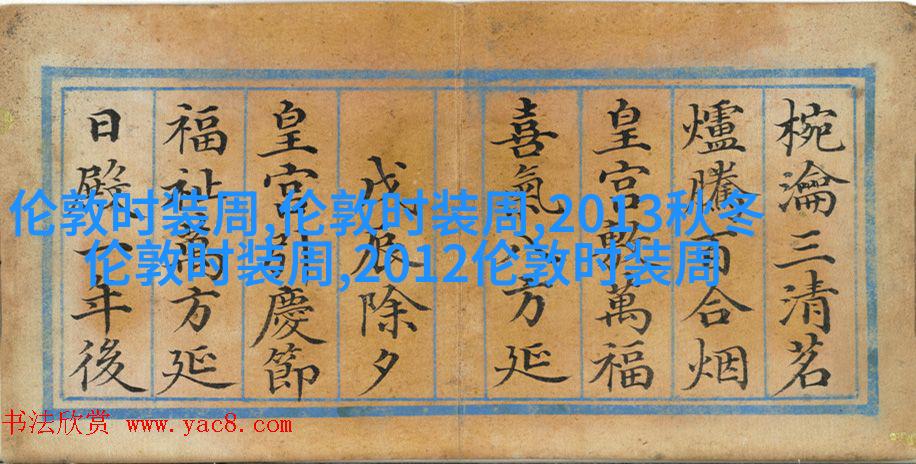 椀瀹三清茗
爐騰百合烟
皇宮敷萬福
喜氣八方延
戊辰除夕
皇宮慶節
福祉萬方延
日一年後
伦敦时装周,伦敦时装周,2013秋冬
伦敦时装周,2012伦敦时装周
书法欣赏 www.yac8.com